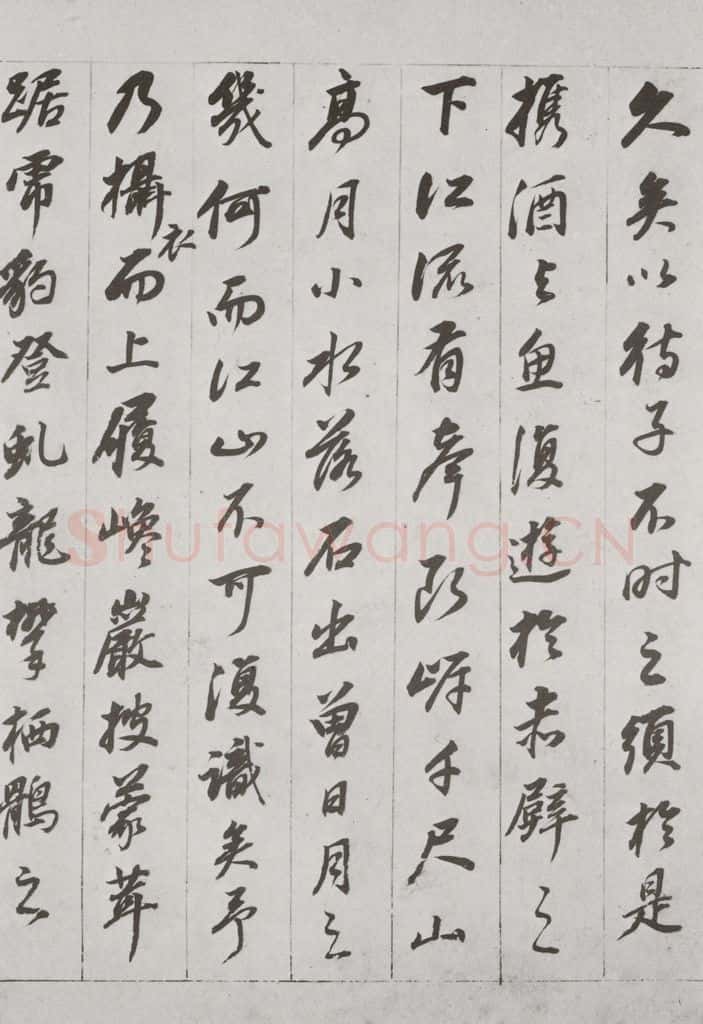 久矣以待子不时之須於是
携酒与魚復遊於赤壁之
下江流有声断岸千尺山
高月小水落石出曾日月之
幾何而江山不可復識矣予
乃攝衣而上履巉巖披蒙茸
踞虎豹登虬龍攀栖鶻之
Shufawang.CN